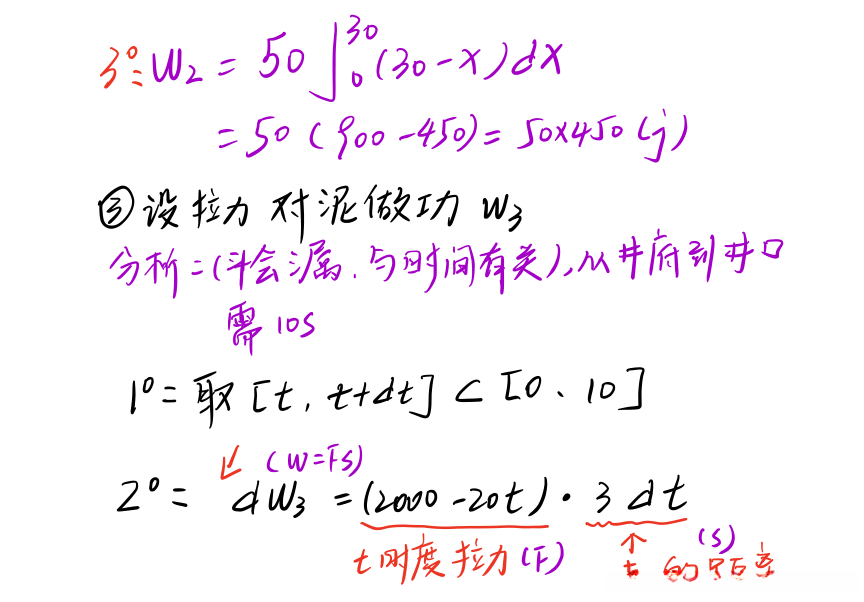 3°: W₂ = 50∫₀³⁰(30-x)dx
= 50(900-450) = 50×450(j)
③设拉力对泥做功 W₃
分析:(斗会漏、与时间有关),从井府到井口
需10s
1°: 取[t, t+dt]⊂[0、10]
(W=FS)
2°: dW₃ = (2000-20t)·3dt
t时度拉力(F) ↑ (S)
t 的距离